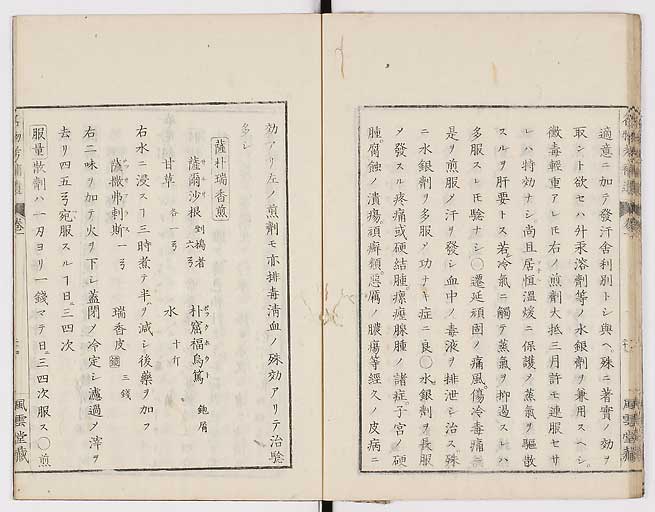 適意ニ加テ發汗舎利別トシ與ヘ殊ニ著實ノ効ヲ
取ント欲セハ外汞溶劑等ノ水銀劑ヲ兼用スヘシ
微毒輕重アレ𪜈右ノ煎劑大抵三月許モ連服セサ
レハ特効ナシ尚且居恒溫煖ニ保護ノ蒸氣ヲ驅散
スルヲ肝要トス若冷氣ニ觸テ蒸氣ヲ抑遏スレハ
多服スレ𪜈驗ナシ○遷延頑固ノ痛風傷冷毒痛
是ヲ煎服ノ汗ヲ發シ血中ノ毒液ヲ排泄シ治ス殊
ニ水銀劑ヲ多服ノ功ナキ症ニ良○水銀劑ヲ長服
ノ發スル疼痛或硬結腫瘰癧腺腫ノ諸症子宮ノ硬
腫腐蝕ノ潰瘍頑癬類惡厲ノ膿瘍等經久ノ皮病ニ
風雲堂藏
効アリ左ノ煎劑モ亦排毒淸血ノ殊効アリテ治驗
多シ
薩朴瑞香煎
薩爾沙根 剉搗者 六弓 朴窟福烏篤 鉋屑
甘草 各一弓 水 十介
右水ニ浸スヿ三時煮テ半ヲ減シ後藥ヲ加フ
薩撒弗剌斯 一弓 瑞香皮 三錢
右二味ヲ加テ火ヲ下シ蓋閉ノ冷定シ濾過ノ滓ヲ
去リ四五弓宛服スルヿ日ニ三四次
服量散劑ハ一刄ヨリ一錢マテ日ニ三四次服ス○煎
卷一
風雲堂藏